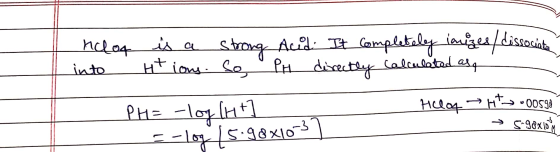 HClO4 is a strong Acid. It completely ionizes/dissociate
into H+ ions. So, PH directly calculated as,
PH = -log[H+]
= -log [5.98x10-3]
HClO4 → H+ → .00598
→ 5.98x10-3 M